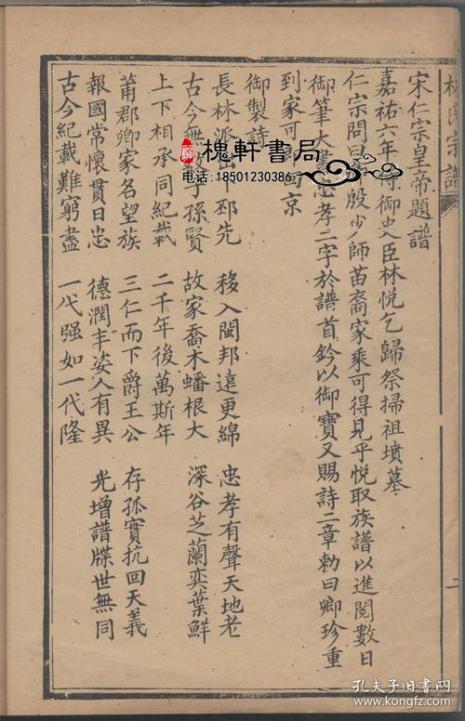 林氏宗譜
二
宋仁宗皇帝題譜
嘉祐六年侍御史臣林悅乞歸祭掃祖墳墓
仁宗問曰卿殷少師苗裔家乘可得見乎悅取族譜以進閱數日
御筆大書忠孝二字於譜首鈐以御寶又賜詩二章勅曰卿珍重
到家可回京
御製詩
長林派出邳先　移入閩邦遠更綿　忠孝有聲天地老
古今無數子孫賢　故家喬木蟠根大　深谷芝蘭奕葉鮮
上下相承同紀載　二千年後萬斯年
莆郡卿家名望族　三仁而下爵王公　存孤實抗回天義
報國常懷貫日忠　德潤丰姿人有異　光增譜牒世無同
古今紀載難窮盡　一代强如一代隆
槐軒書局
电话：18501230386
孔夫子旧书网
www.kongfz.com